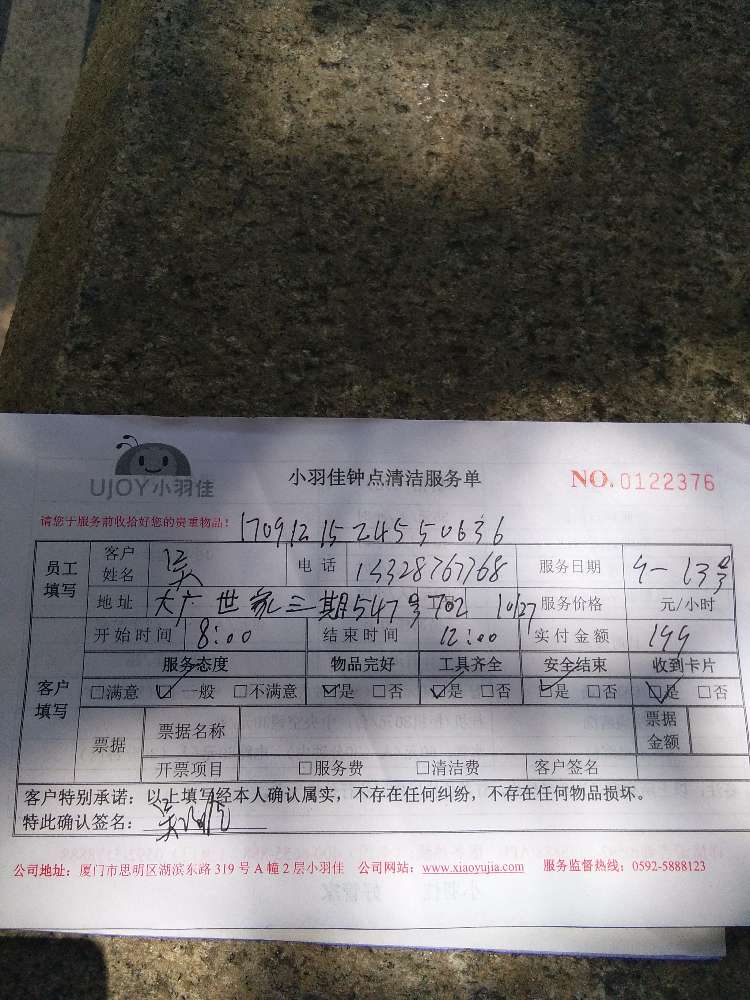 UJOY小羽佳
小羽佳钟点清洁服务单
NO. 0122376
请您于服务前收拾好您的贵重物品!
1709121524550636
员工填写 客户姓名 吴 电话 13328767768 服务日期 9-13号
地址 大广世家三期547号702 10/27 服务价格 元/小时
客户填写 开始时间 8:00 结束时间 12:00 实付金额 199
服务态度 物品完好 工具齐全 安全结束 收到卡片
□满意 ☑一般 □不满意 ☑是 □否 ☑是 □否 ☑是 □否 ☑是 □否
票据 票据名称 票据金额
开票项目 □服务费 □清洁费 客户签名
客户特别承诺:以上填写经本人确认属实,不存在任何纠纷,不存在任何物品损坏。
特此确认签名:吴
公司地址:厦门市思明区湖滨东路319号A幢2层小羽佳 公司网站:www.xiaoyujia.com 服务监督热线:0592-5888123